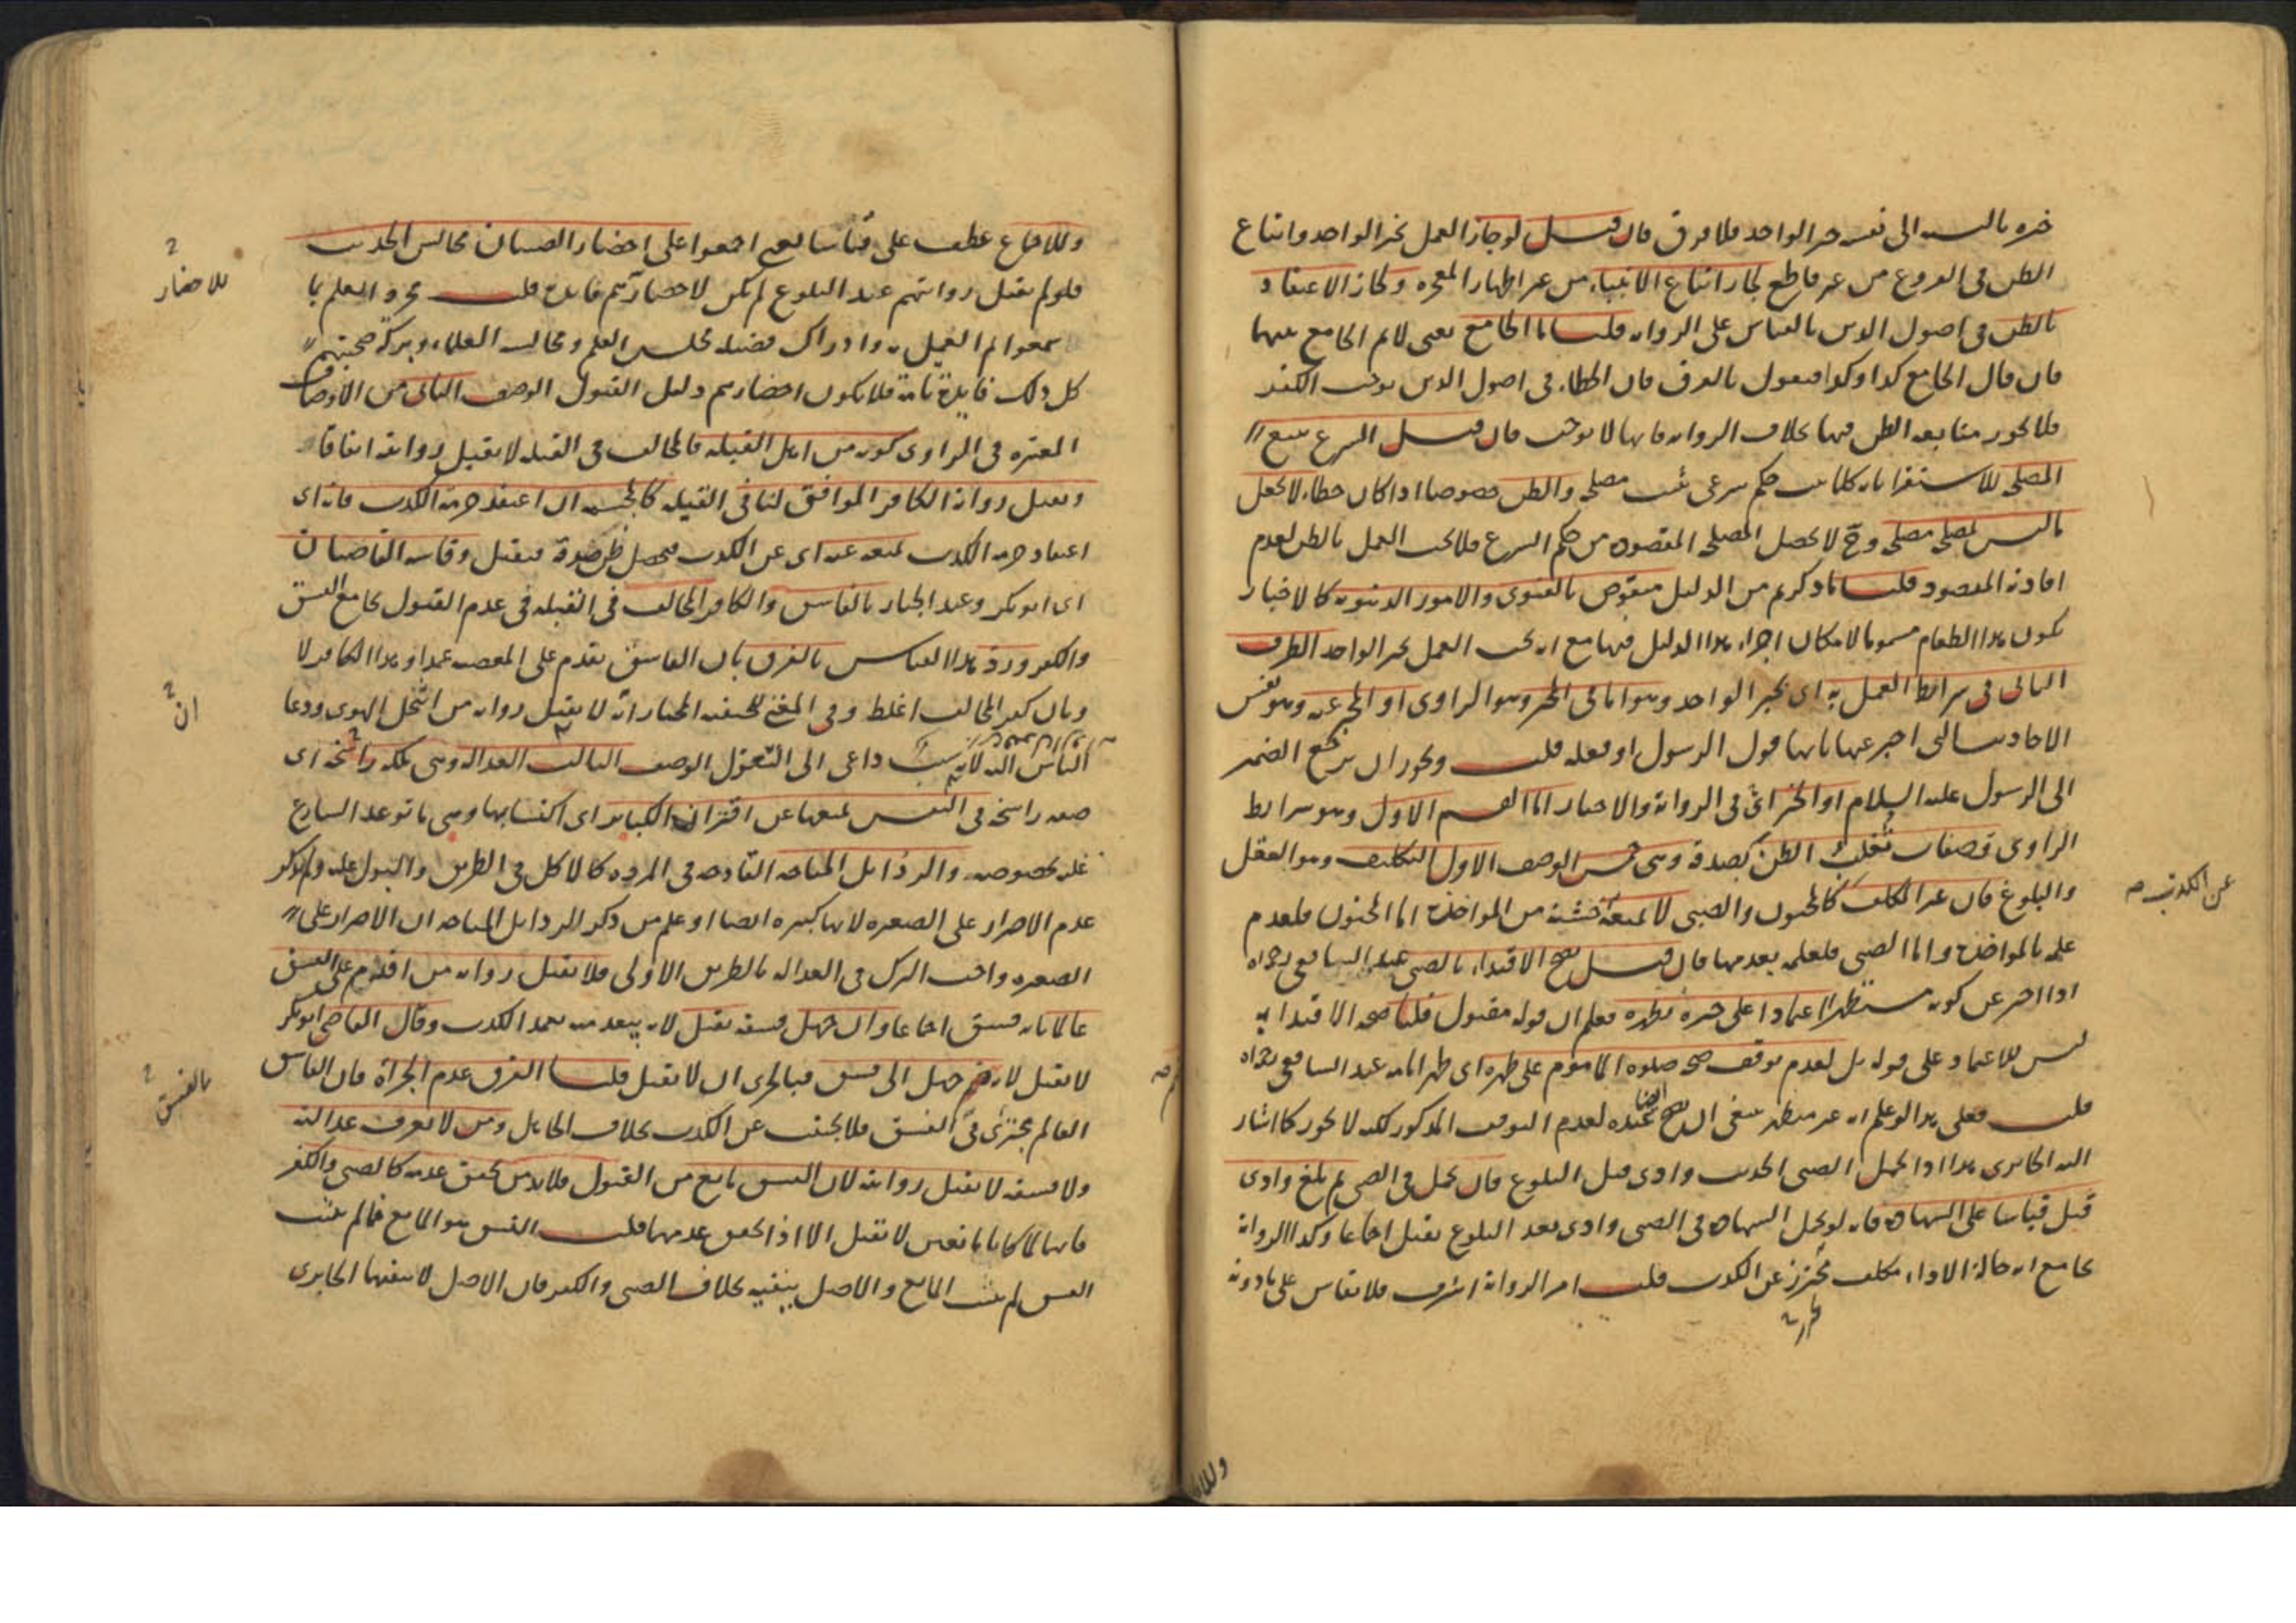 خبره بالنسبة الى نفسه خبر الواحد فلا فرق فان قيل لو جاز العمل بخبر الواحد واتباع
الظن في الفروع من غير قاطع لجاز اتباع الانبياء من غير اظهار المعجزة ولجاز الاعتقاد
بالظن في اصول الدين بالقياس على الرواية قلنا ما الجامع يعنى لانم الجامع بينهما
فان قال الجامع كذا وكذا فنقول بالفرق فان الخطاء في اصول الدين يوجب الكفر
فلا يجوز متابعة الظن فيها بخلاف الرواية فانها لا توجب فان قيل الشرع يتبع
المصلحة للاستقرا بانه كلما ثبت حكم شرعى ثبت مصلحة والظن خصوصا اذا كان خطاء لا يجعل
ما ليس بمصلحة مصلحة وح لا يحصل المصلحة المقصودة من حكم الشرع فلا يجب العمل بالظن لعدم
افادته المقصود قلنا ما ذكرتم من الدليل منقوض بالفتوى والامور الدنيوية كالاخبار
بكون هذا الطعام مسموما لامكان اجراء هذا الدليل فيها مع انه يجب العمل بخبر الواحد الطرف
الثانى في شرايط العمل به اى بخبر الواحد وهو اما في المخبر وهو الراوى او المخبر عنه وهو نفس
الاحاديث التى اخبر عنها بانها قول الرسول او فعله قلت ويجوز ان يرجع الضمير
الى الرسول عليه السلام او الخبر اى في الرواية والاخبار اما القسم الاول وهو شرايط
الراوى فصفات تغلب الظن بصدقه وهى خمس الوصف الاول التكليف وهو العقل
والبلوغ فان غير المكلف كالمجنون والصبى لا يمنعه خشية من المواخذة اما المجنون فلعدم
علمه بالمواخذة واما الصبى فلعلمه بعدمها فان قيل يصح الاقتداء بالصبى عند الشافعى رحمه الله
اذا اخبر عن كونه متطهرا اعتمادا على خبره بطهره فعلم ان قوله مقبول قلنا صحة الاقتدا به
ليس للاعتماد على قوله بل لعدم توقف صحة صلوة الماموم على طهره اى طهر امامه عند الشافعى رحمه الله
قلت فعلى هذا لو علم انه غير متطهر ينبغى ان يصح ايضا عنده لعدم التوقف المذكور لكنه لا يجوز كما اشار
اليه الجابردى هذا اذا تحمل الصبى الحديث وادى قبل البلوغ فان تحمل في الصبى ثم بلغ وادى
قبل قياسا على الشهادة فانه لو تحمل الشهادة في الصبى وادى بعد البلوغ يقبل اجماعا وكذا الرواية
بجامع انه حالة الاداء مكلف محترز عن الكذب قلت امر الرواية اشرف فلا يقاس على ما دونه
عن الكذب صح
وللاجماع عطف على قياسا يعنى اجمعوا على احضار الصبيان مجالس الحديث
فلو لم يقبل روايتهم عند البلوغ لم يكن لاحضارهم فايدة قلت مجرد العلم بما
سمعوا لم العمل به وادراك فضيلة مجلس العلم ومجالسة العلماء وبركة صحبتهم
كل ذلك فايدة تامة فلا يكون احضارهم دليل القبول الوصف الثانى من الاوصاف
المعتبره في الراوى كونه من اهل القبلة فالمخالف في القبلة لا يقبل روايته اتفاقا
ويقبل رواية الكافر الموافق لنا في القبلة كالمجسمة ان اعتقد حرمة الكذب فانه اى
اعتقاد حرمة الكذب يمنعه عنه اى عن الكذب فيحصل ظن صدقه فيقبل وقاسه القاضيان
اى ابو بكر وعبد الجبار بالفاسق والكافر المخالف في القبلة في عدم القبول بجامع الفسق
والكفر ورد هذا القياس بالفرق بان الفاسق يقدم على المعصية عمدا وهذا الكافر لا
وبان كفر المخالف اغلظ وفي المغنى للحنفية المختار انه لا يقبل رواية من انتحل الهوى ودعا
الناس اليه لانه سبب داعى الى التقول الوصف الثالث العدالة وهى ملكة راسخة اى
صفة راسخة في النفس يمنعها عن اقتراف الكباير اى اكتسابها وهى ما توعد الشارع
عليه بخصوصه والرذايل المباحة القادحة في المروة كالاكل في الطريق والبول عليه ولم يذكر
عدم الاصرار على الصغيرة لانها كبيرة ايضا او علم من ذكر الرذايل المباحة ان الاصرار على
الصغيره واجب الترك في العدالة بالطريق الاولى فلا يقبل رواية من اقدم على الفسق
عالما بانه فسق اجماعا وان جهل فسقه يقبل لانه يبعد منه تعمد الكذب وقال القاضى ابو بكر
لا يقبل لانه ضم جهل الى فسق فبالحرى ان لا يقبل قلنا الفرق عدم الجرأة فان الفاسق
العالم يجترى في الفسق فلا يجتنب عن الكذب بخلاف الجاهل ومن لا يعرف عدالته
ولا فسقه لا يقبل روايته لان الفسق مانع من القبول فلابد من تحقق عدمه كالصبى والكفر
فانهما لما كانا مانعين لا تقبل الا اذا تحقق عدمهما قلت الفسق هو المانع فما لم يثبت
الفسق لم يثبت المانع والاصل ينفيه بخلاف الصبى والكفر فان الاصل لا ينفيهما الجابردى
للاحضار
ان
بالفسق